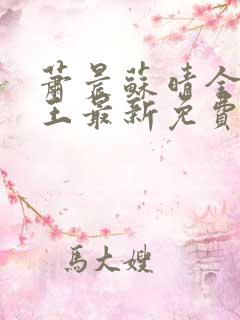 蕭晨蘇晴全
主最新免費
馬大嫂